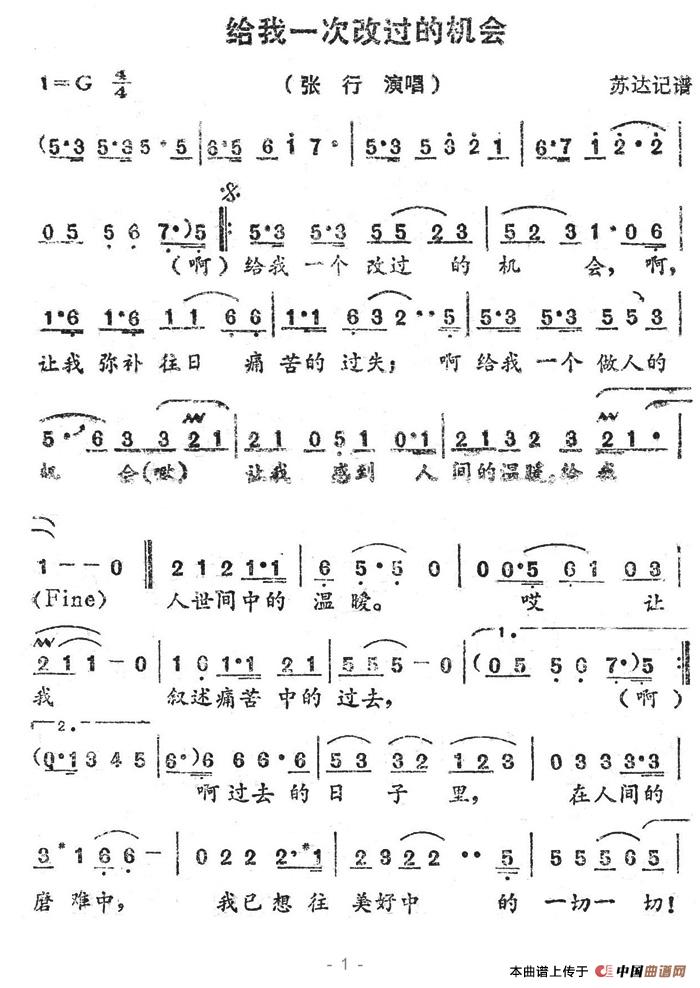 给我一次改过的机会
1=G 4/4 (张 行 演唱) 苏达记谱
(5·3 5·3 5 · 5 | 6·5 6 i 7 · | 5·3 5 3 5 3 2 1 | 6·7 1 2·2 |
0 5 5 6 7·) 5 5·3 5·3 5 5 2 3 | 5 2 3 1·0 6 |
(啊)给我 一个 改过 的 机 会, 啊,
1·6 1·6 1 1 6 6 | 1·1 6 3 2 ··5 | 5·3 5·3 5 5 3 |
让我 弥补 往日 痛苦的 过失; 啊给我 一个 做人的
5 · 6 3 3 2 1 | 2 1 0 5 1 0·1 | 2 1 3 2 3 2 1 · |
机 会(呔) 让我 感到 人 间的温暖,给我
1 - - 0 2 1 2 1 1·1 | 6 5·5 0 | 0 0·5 6 1 0 3 |
(Fine) 人世间中的 温 暖。 哎 让
1.
2 1 1 - 0 | 1 0 1·1 2 1 | 5 5 5 - 0 | (0 5 5 6 7·) 5 :
我 叙述痛苦 中的 过去, (啊)
2.
(0·1 3 4 5 | 6·) 6 6 6·6 | 5 3 3 2 1 2 3 | 0 3 3 3 3·3 |
啊过去 的 日 子 里, 在人间的
3 #1 6 6 - | 0 2 2 2 2·#1 | 2 3 2 2 ··5 | 5 5 5 6 5 |
磨 难中, 我已想往 美好中 的 一切一切!
- 1 -
本曲谱上传于 中国曲谱网